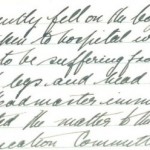 ently fell on the bo
him to hospital in
to be suffering from
legs and head
admaster imm
ted the matter to the
ucation Committe